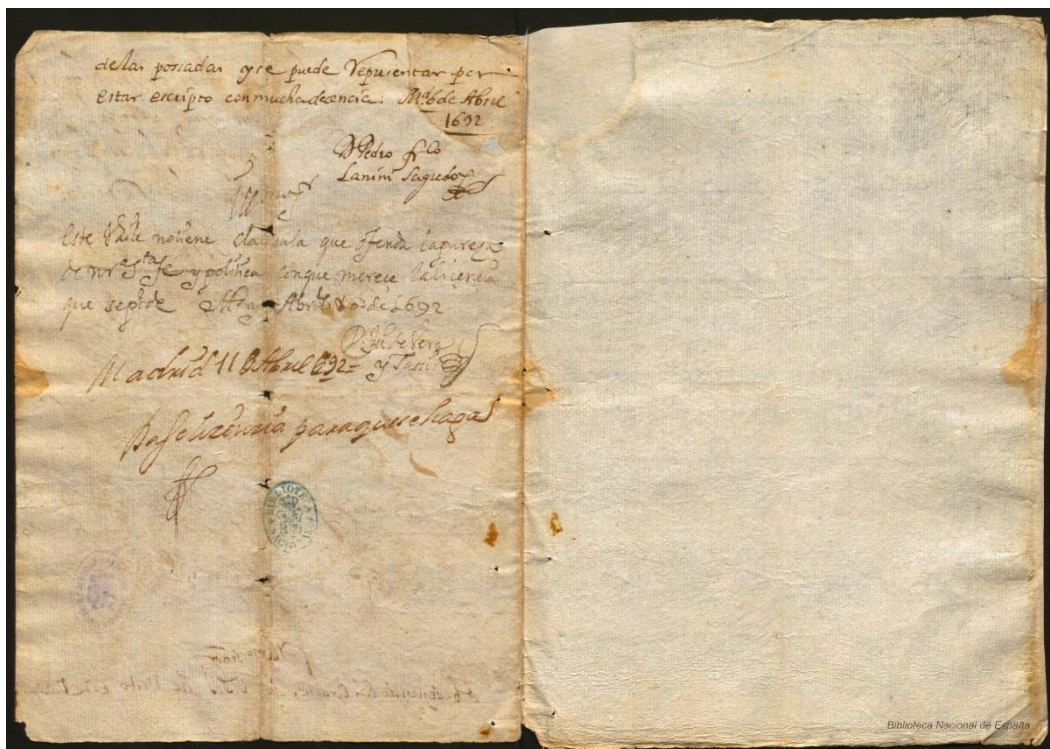 de las possadas y se puede Representar por
estar escripto con mucha decencia. Md. 6 de Abril
1692
D Pedro frco
Lanini Sagredo
Este Baile no tiene clausula que ofenda la pureza
de nra Sta fe y politica conque merece la licencia
que se pide Abril de 1692
y Tassis
Madrid 11 de Abril 692=
Dase licenzia para que se haga
BIBLIOTECA
Biblioteca Nacional de España